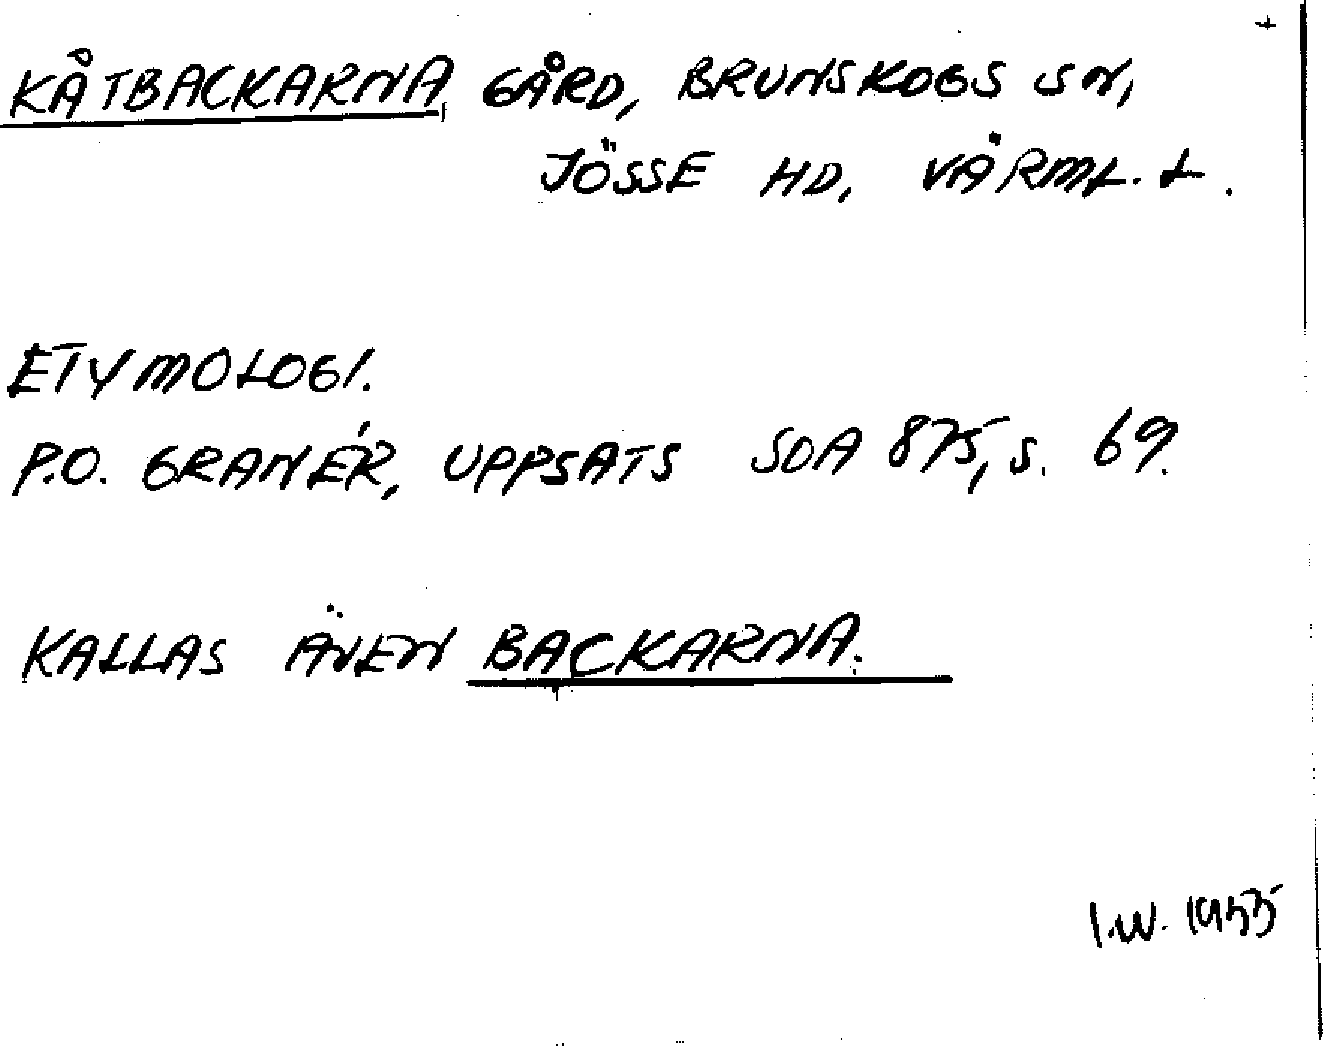 KÅTBACKARNA, GÅRD, BRUNSKOGS SN,
JÖSSE HD, VÄRML. L.
ETYMOLOGI.
P.O. GRANÉR, UPPSATS SOA 875, S. 69.
KALLAS ÄVEN BACKARNA.
I.W. 1955